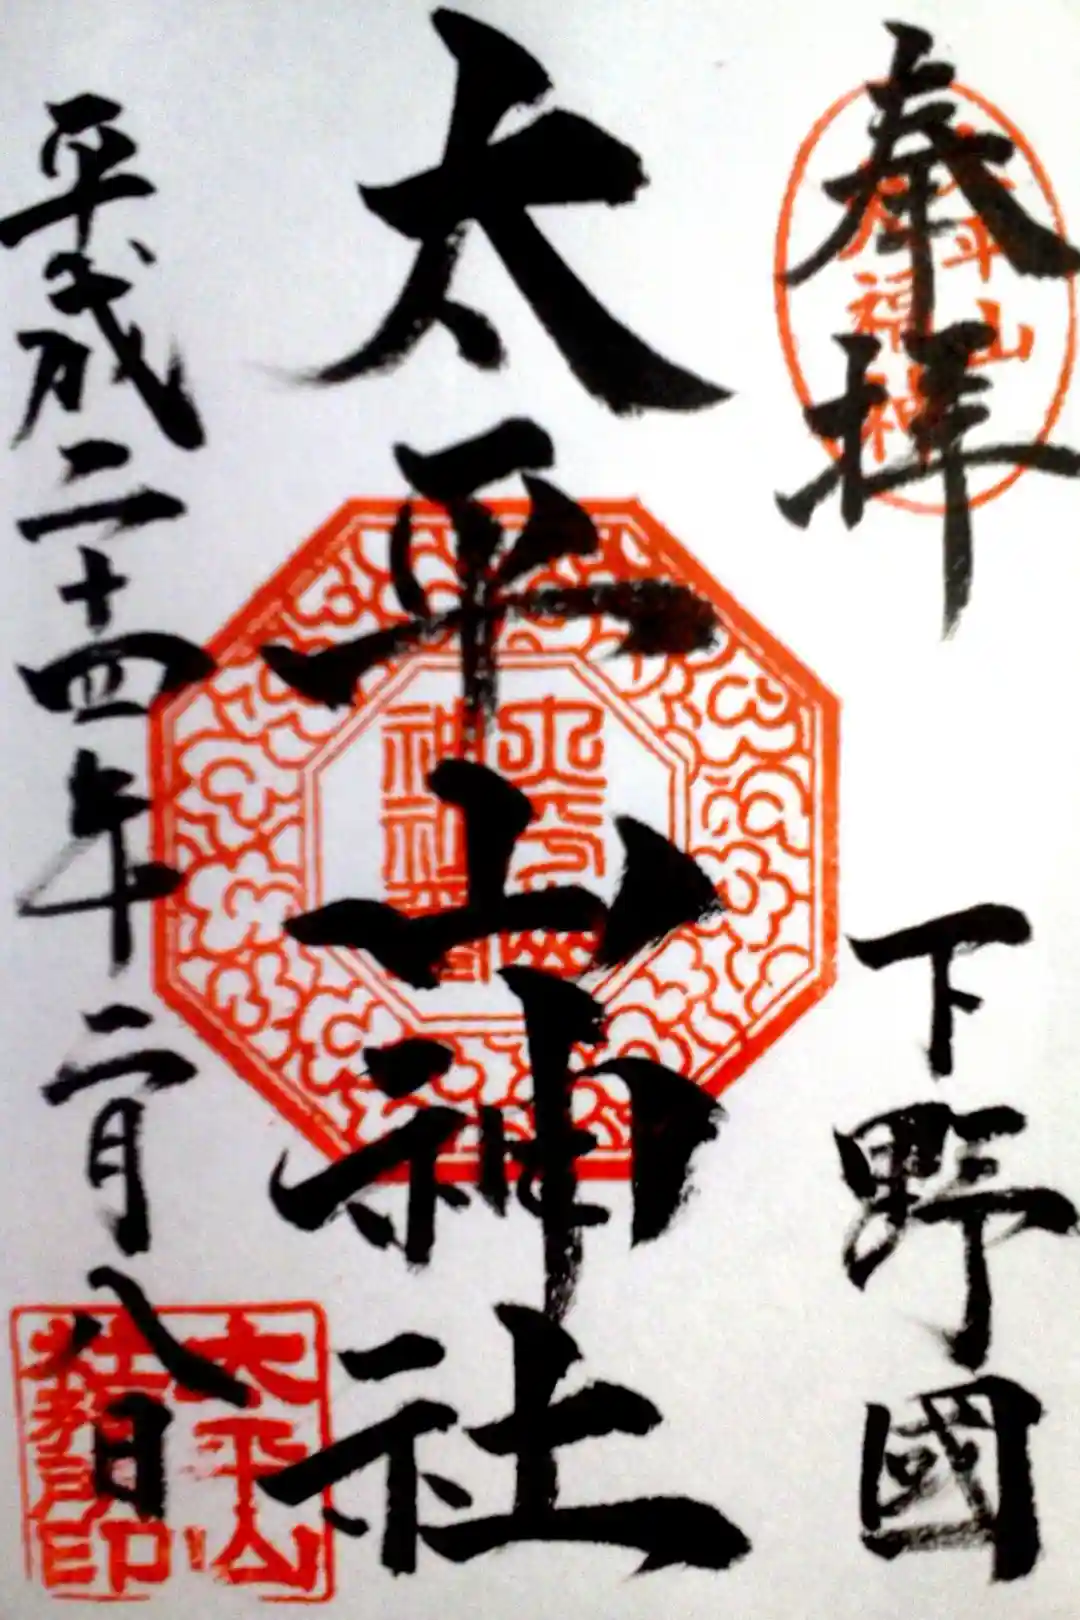 奉拝
下野國
太平山神社
平成二十四年二月八日
太平山
福神
太平山
社務所印